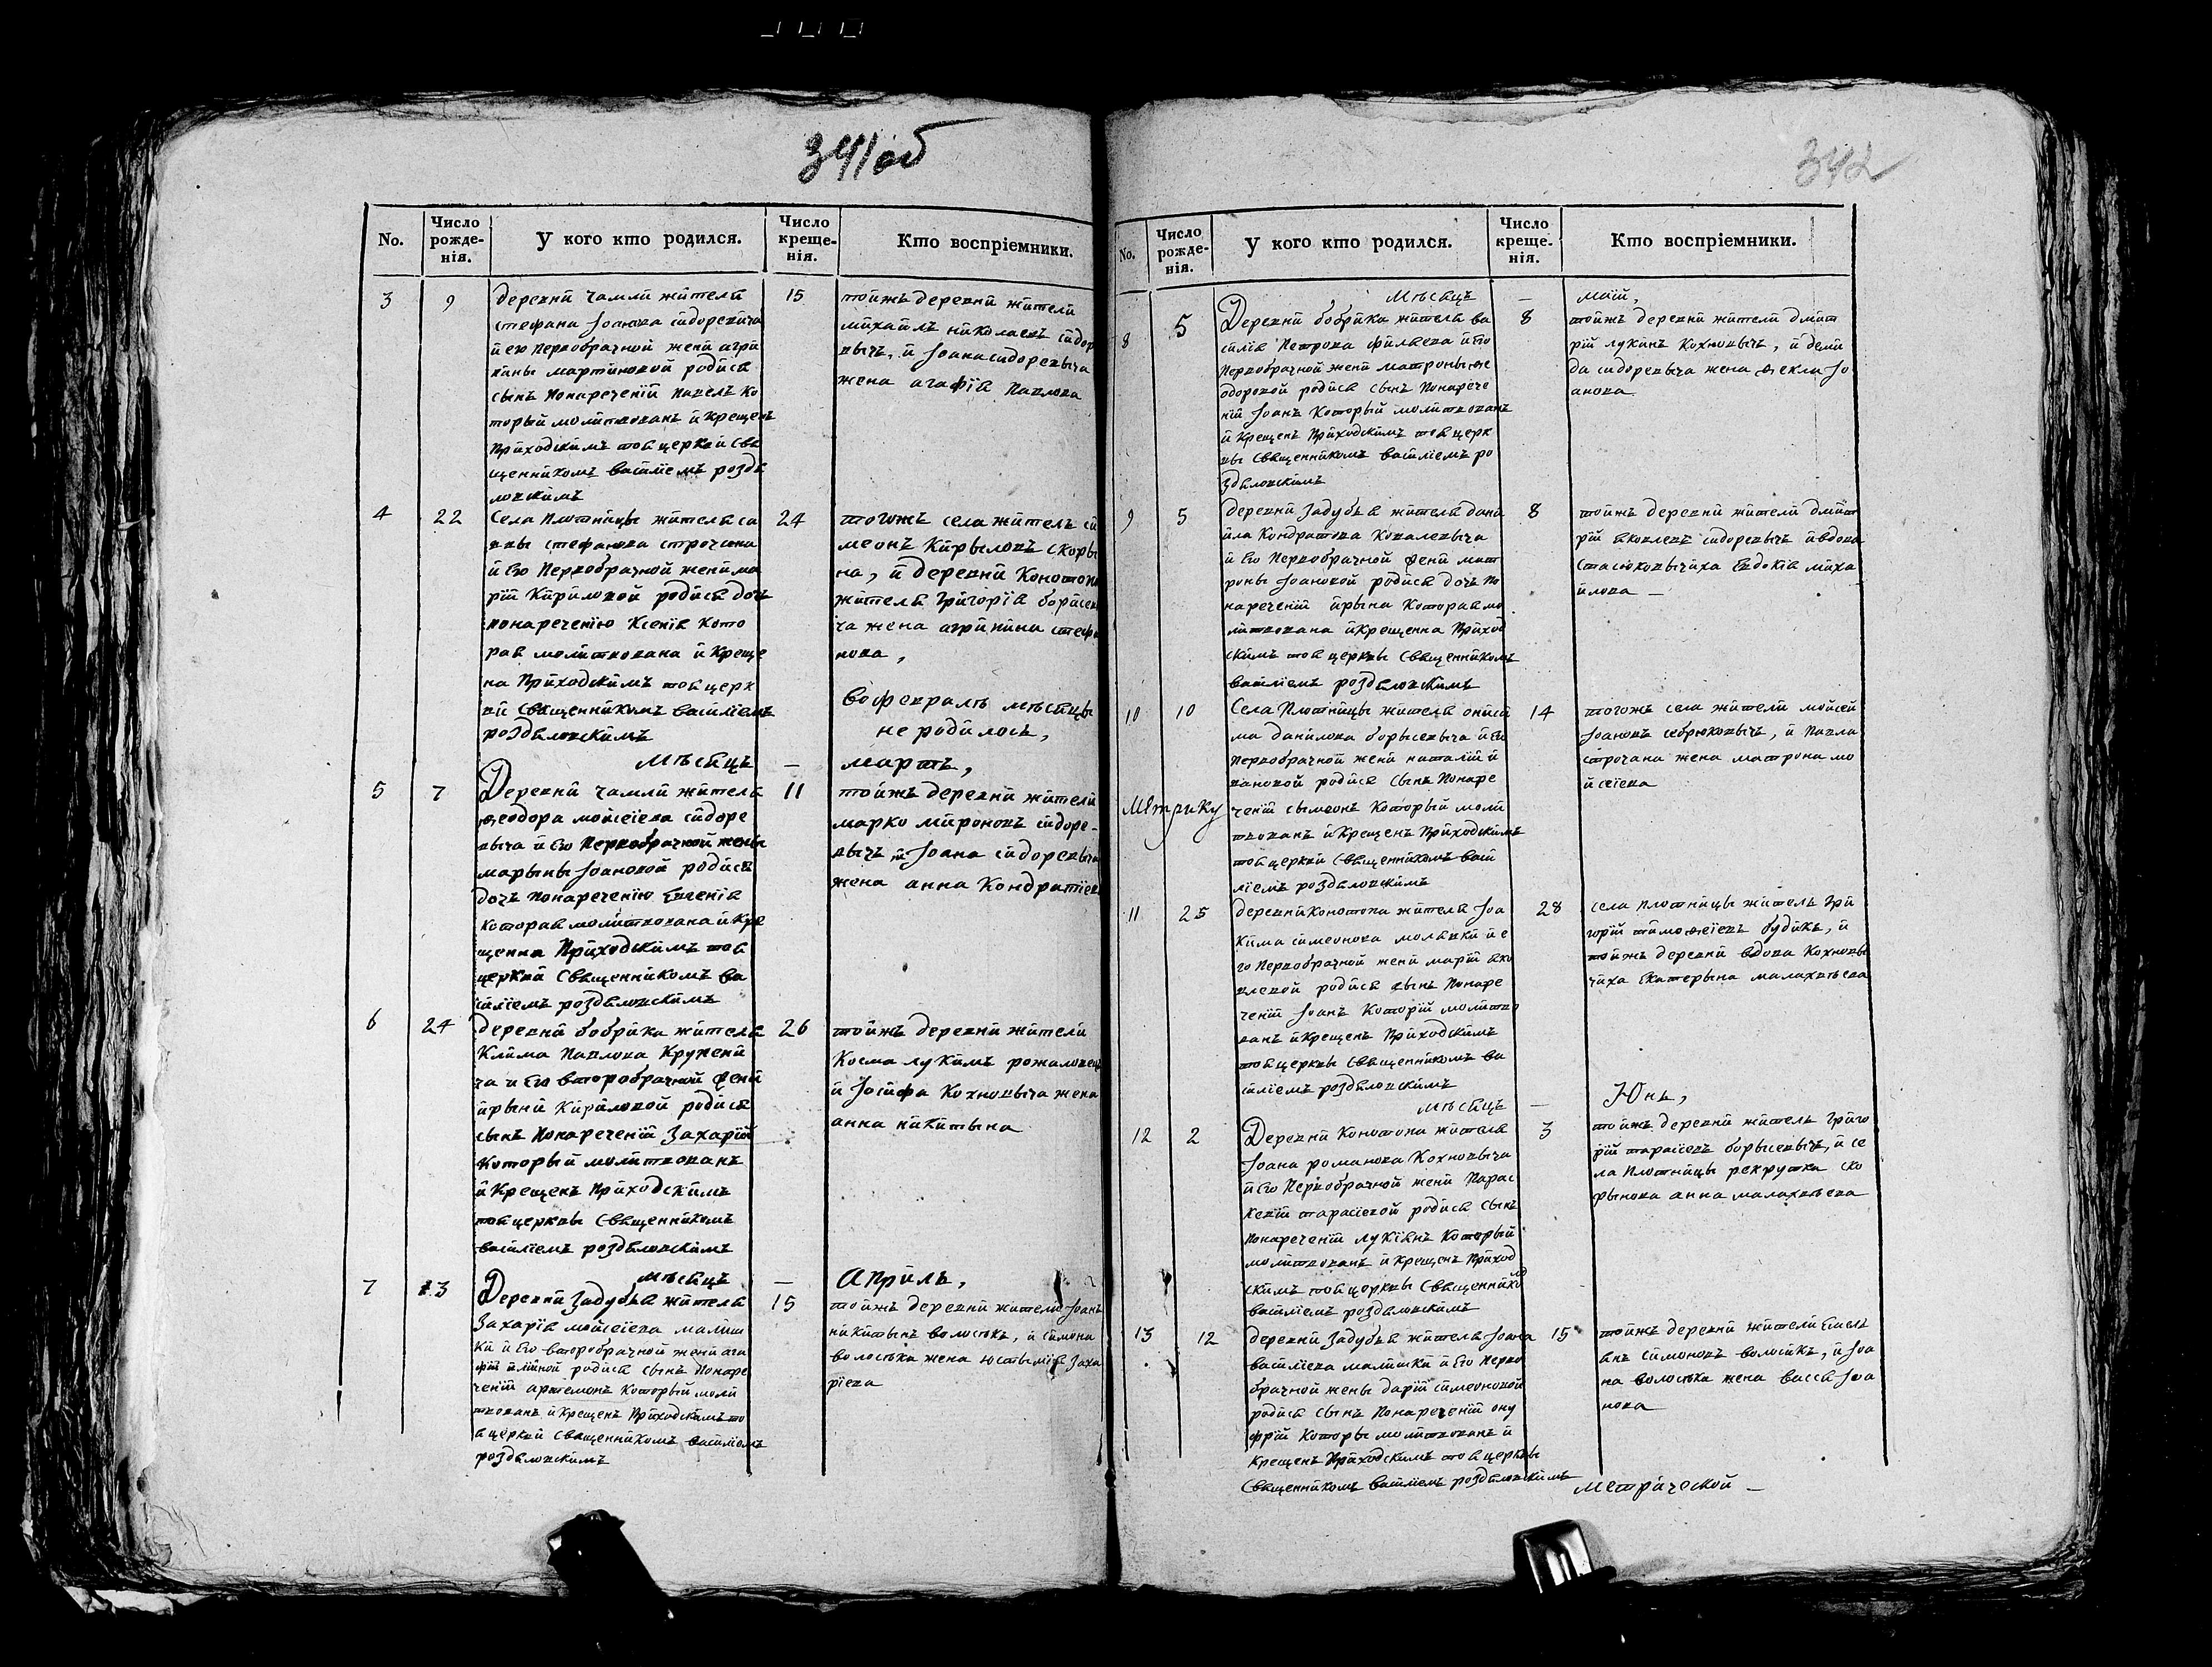 341об
No.
Число рожде-нія.
У кого кто родился.
Число креще-нія.
Кто воспріемники.
3
9
15
деревнй Чамли жителя
стефана Іоанова сидоревича
и его первобрачной жени агри
пины мартиновой родися
сынъ понареченій Павелъ ко
торый молитвованъ и крещенъ
приходскимъ тоя церкви свя
щенникомъ василіемъ роздя
ловскимъ
тойжъ деревни жители
михаилъ николаевъ сидор
вычъ, и Іоана сидоревыча
жена агафія Павлова
4
22
24
Села Плотницы жителя са
вы стефанова строчана
и его первобрачной жени ма
рій Кириловой родися дочь
понареченію Ксенія кото
рая молитвована и креще
на приходскимъ тоя церк
ви священникомъ василіемъ
роздяловскимъ
тогожъ села житель си
меонъ Кирыловъ скоры
на, и деревни Коното
жителя григорія борисев
ча жена агрипина стеф
нова,
Во февралъ мъсяцы
не родилось,
мъсяцъ — мартъ,
5
7
11
Деревни чамли жителя
феодора мойсіева сидоре
выча и его первобрачной жены
марыны Іоановой родися
дочь понареченію Евгенія
которая молитвована и кре
щенна приходскимъ тоя
церкви священникомъ ва
силіемъ роздяловскимъ
тойжъ деревни жители
марко мироновъ сидоре-
вычъ и Іоана сидоревыча
жена анна Кондратіев
6
24
26
деревни бобрика жителя
Клима Павлова Крупени
ча и его второбрачной жени
ирыни Кириловой родися
сынъ понареченій Захарій
который молитвованъ
и крещенъ приходскимъ
тоя церквы священникомъ
василіемъ роздяловскимъ
тойжъ деревни жители
Косма лукинъ рожаловец
и Іосифа Кохновыча жена
анна никитына
мъсяцъ — Априль,
7
13
15
Деревни Задубья жителя
Захарія мойсіева малиш
ки и его второбрачной жени ага
фіи илиной родися сынъ понаре
ченій артемонъ который моли
твованъ и крещенъ приходскимъ то
я церкви священникомъ василіемъ
роздяловскимъ
тойжъ деревни жители Іоанъ
никитынъ волосюкъ, и симона
волосюка жена юстымія заха
ріева
342
No.
Число рожде-нія.
У кого кто родился.
Число креще-нія.
Кто воспріемники.
Мъсяцъ — маій,
8
5
8
Деревни бобрика жителя ва
силія Петрова фильева и его
первобрачной жени матроны фе
одоровой родися сынъ понарече
ній Іоанъ который молитвованъ
и крещенъ приходскимъ тоя церк
вы священникомъ василіемъ ро
здяловскимъ
тойжъ деревни жители дмит
рій лукинъ Кохновычъ, и деми
да сидоревыча жена фекла Іо
анова
9
5
8
деревни Задубья жителя дани
ила Кондратова Ковалевыча
и его первобрачной жени мат
роны Іоановой родися дочь по
нареченій ирына которая мо
литвована и крещенна приход
скимъ тоя церквы священникомъ
василіемъ роздяловскимъ
тойжъ деревни жители дмит
рій яковлевъ сидоревычъ и вдова
стасюковычиха Евдокія миха
илова —
10
10
14
Села Плотницы жителя ониси
ма данилова борысевыча и его
первобрачной жени наталіи и
вановой родися сынъ понаре
ченій сымеонъ который моли
твованъ и крещенъ приходскимъ
тоя церкви священникомъ васи
ліемъ роздяловскимъ
тогожъ села жители мойсей
Іоановъ себрюковычъ, и Павла
строчана жена матрона мо
йсіева
Метрику
11
25
28
деревни Конотопа жителя Іоа
кима симеонова молявки и е
го первобрачной жени маріи яко
влевой родися сынъ понаре
ченій Іоанъ которій молитво
ванъ и крещенъ приходскимъ
тоя церквы священникомъ ва
силіемъ роздяловскимъ
села плотницы житель гри
горій тимофеіевъ будикъ, и
тойжъ деревни вдова Кохновы
чиха Екатерына малахвъева
мъсяцъ — Юнь,
12
2
3
Деревни Конотопа жителя
Іоана романова Кохновыча
и его первобрачной жени парас
кевіи тарасіевой родися сынъ
понареченій лукіянъ который
молитвованъ и крещенъ приход
скимъ тоя церквы священнико
василіемъ роздяловскимъ
тойжъ деревни житель григо
рій тарасіевъ борысевычъ, и се
ла плотницы рекрутка ско
рынова анна малахвъева
13
12
15
деревни Задубья жителя Іоана
василіева малишки и его перво
брачной жены даріи симеоновой
родися сынъ понареченій ону
фрій которы молитвованъ и
крещенъ приходскимъ тоя церквы
священникомъ василіемъ роздяловскимъ
тойжъ деревни жители Емель
янъ симоновъ волосюкъ, и Іоа
на волосюка жена васса Іоа
нова
метрической —